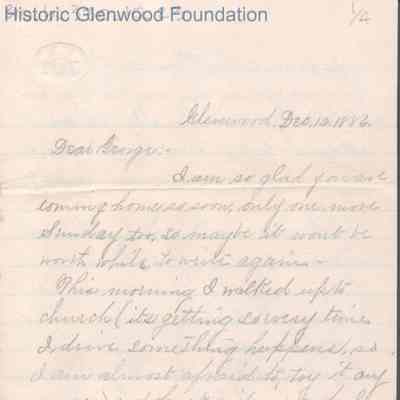 Historic Glenwood Foundation
1/2
Glenwood, Dec. 12, 1886.
Dear George:-
I am so glad you are
coming home so soon, only one more
Sunday too, so maybe it wont be
worth while to write again.-
This morning I walked up to
church (its getting so every time
I drive something happens, so
I am almost afraid to try it any